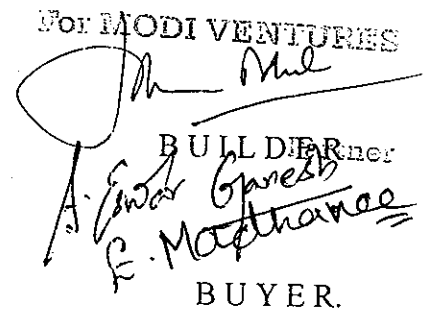 For MODI VENTURES
BUILDER
Partner
A. Eswar Ganesh
E. Madhavae
BUYER.